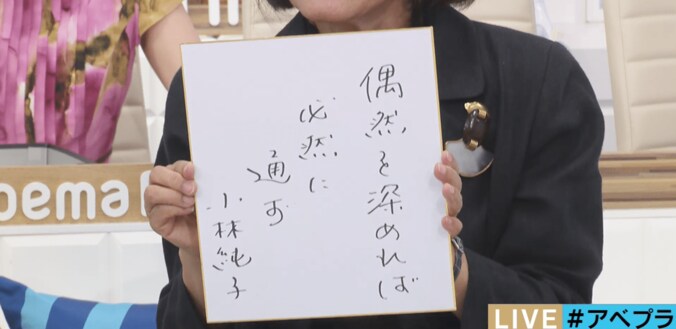 偶然を深めれば
必然に
通ず
小林純子
bema
LIVE
#アベプラ